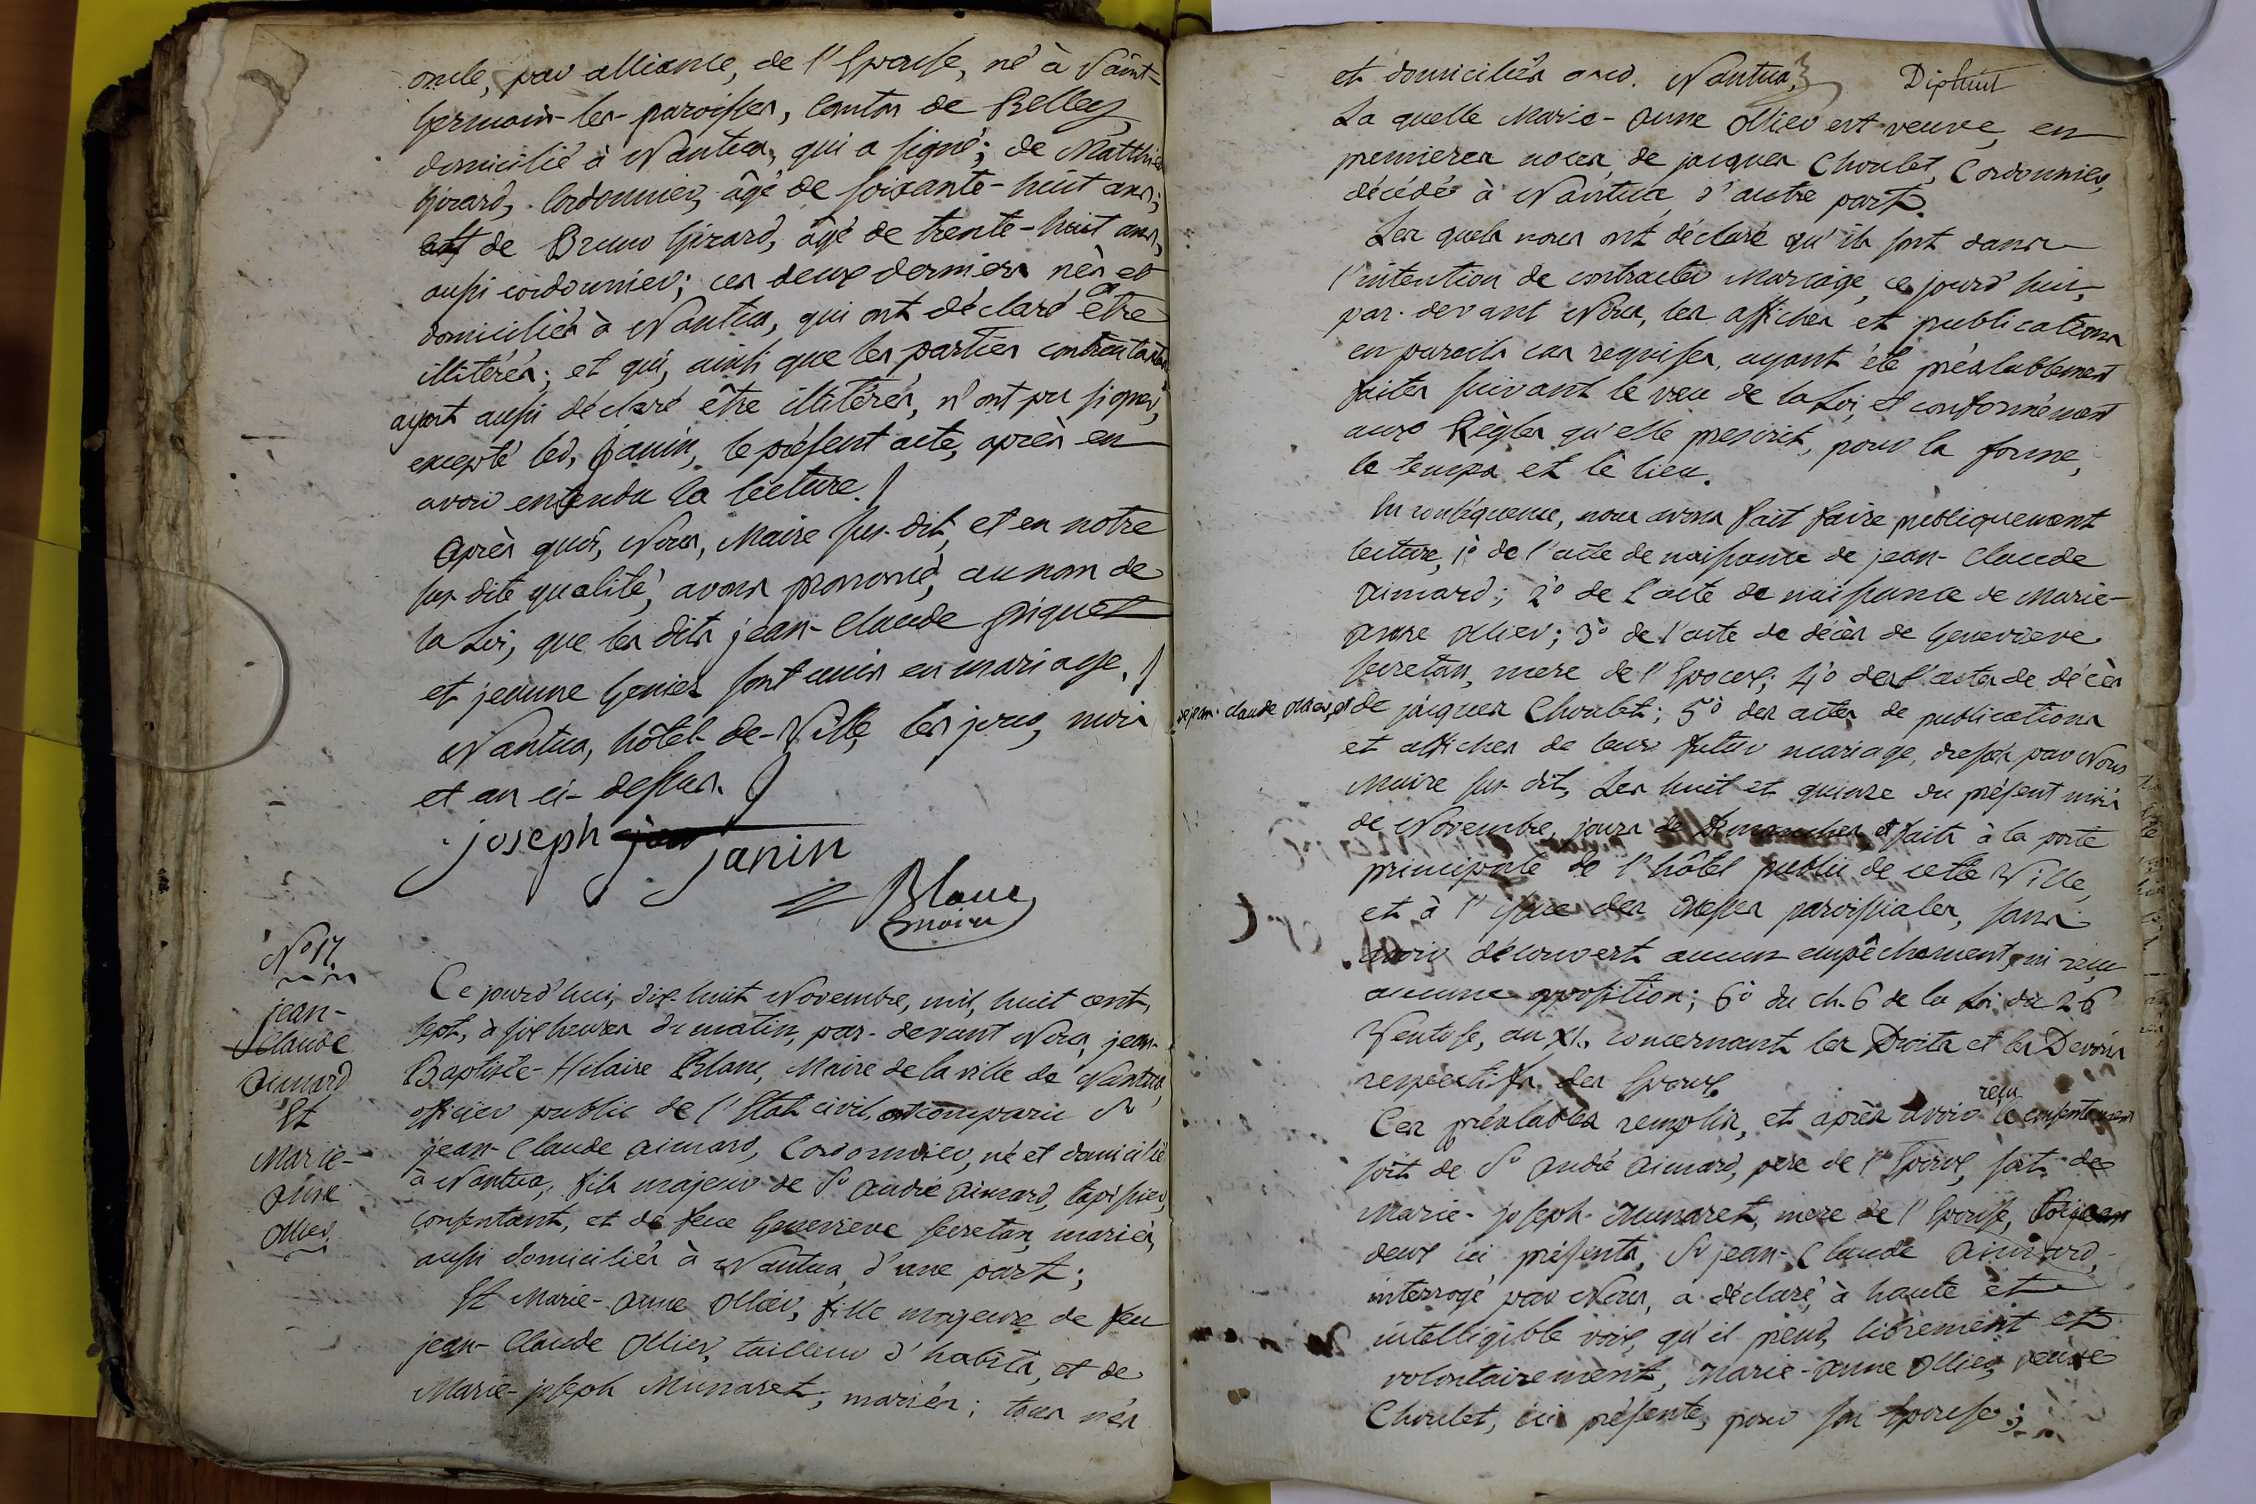 oncle, par alliance, de l'Epouse, né à Saint-
Germain-les-paroisses, Canton de Belley,
domicilié à Nantua, qui a signé; de Matthieu
Girard, Cordonnier, âgé de soixante-huit ans;
et de Bruno Girard, âgé de trente-huit ans,
aussi cordonnier; ces deux derniers nés et
domiciliés à Nantua, qui ont déclaré être
illitérés; et qui, ainsi que les parties contractantes
ayant aussi déclaré être illitérés, n'ont pu signer,
excepté led. Janin, le présent acte, après en
avoir entendu la lecture.
Après quoi, Nous, Maire sus-dit, et en notre
sus-dite qualité, avons prononcé, au nom de
la Loi, que les dits jean-Claude piquet
et jeanne Genier sont unis en mariage.
Nantua, hôtel-de-Ville, les jour, mois
et an ci-dessus.
joseph janin
Blanc
maire
N° 17.
jean-
Claude
aimard
Et
Marie-
anne
ollier
Ce jourd'hui, dix-huit Novembre, mil, huit cent,
sept, à six heures du matin, par-devant Nous, jean-
Baptiste-Hilaire Blanc, Maire de la ville de Nantua,
officier public de l'Etat civil, ont comparu Sr
jean-Claude aimard, Cordonnier, né et domicilié
à Nantua, fils majeur de Sr andré aimard, tapissier,
consentant, et de feue Genevieve secretan, mariés,
aussi domiciliés à Nantua, d'une part;
Et Marie-anne ollier, fille majeure de feu
jean-Claude ollier, tailleur d'habits, et de
Marie-joseph Munaret, mariés; tous nés
Dixhuit
et domiciliés aud. Nantua,
La quelle Marie-anne ollier est veuve, en
premieres noces, de jacques Choulet, Cordonnier,
décédé à Nantua, d'autre part.
Les quels nous ont déclaré qu'ils sont dans
l'intention de contracter Mariage, ce jourd'hui,
par-devant Nous, les affiches et publications
en pareils cas requises, ayant été préalablement
faites suivant le vœu de la Loi, et conformément
aux Règles qu'elle prescrit, pour la forme,
le temps et le lieu.
En conséquence, nous avons fait faire publiquement
lecture, 1° de l'acte de naissance de jean-Claude
aimard; 2° de l'acte de naissance de Marie-
anne ollier; 3° de l'acte de décès de Genevieve
secretan, mere de l'Epoux; 4° des actes de décès
de jean-claude ollier, et de jacques Choulet; 5° des actes de publications
et affiches de leur futur mariage, dressés par Nous
Maire sus-dit, Les huit et quinze du présent mois
de Novembre, jours de Dimanches et faits à la porte
principale de l'hôtel public de cette Ville,
et à l'issue des Messes paroissiales, sans
avoir découvert aucun empêchement, ni reçu
aucune opposition; 6° du ch. 6 de la Loi du 26
Ventose, an XI, concernant les Droits et les Devoirs
respectifs des Epoux.
Ces préalables remplis, et après avoir reçu le consentement
soit de Sr andré aimard, pere de l'Epoux, soit de
Marie-joseph Munaret, mere de l'Epouse,
deux ici présents, Sr jean-Claude aimard,
interrogé par Nous, a déclaré à haute et
intelligible voix, qu'il prend, librement et
volontairement, Marie-anne ollier, veuve
Choulet, ici présente, pour son Epouse;